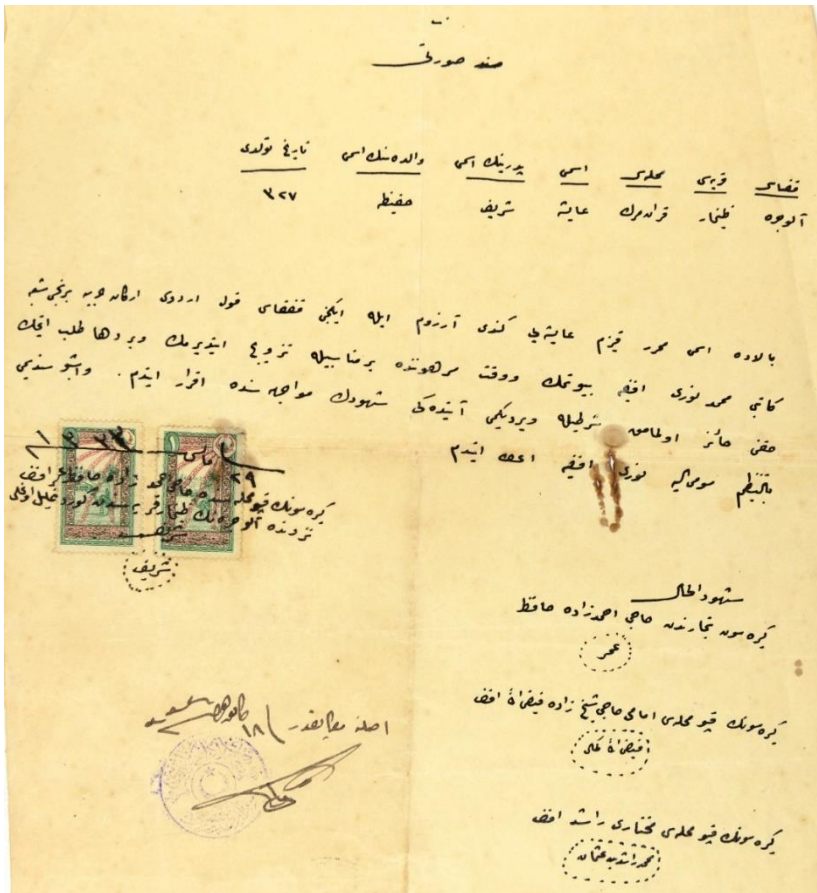 سند صورتی
قضاسی قریه‌سی محله‌سی اسمی پدرینك اسمی والده‌سنك اسمی تاریخ تولدی
آلوجره عایشه شریف حفیظه ٣٢٧
بالاده اسمی محرر قیزم عایشه‌یی كندی آرزوم ایله ایكنجی قفقاس قول اردوی اركان حربیه برنجی شعبه
كاتبی محمد نوری افندی‌یه بیوتمك ووقت مرهوننده بر مناسبیله تزویج ایتدیرمك وبر دها طلب ایتمك
حقنی حائز اولمامق شرطیله ویردیكمی آتیده‌كی شهودك مواجهه‌سنده اقرار ایتدم. واشبو سندیمی
بالتنظیم مومی الیه نوری افندی‌یه اعطا ایتدم
٢٩ مارس ٣٣
كیره‌سونك قپو محله‌سنده حاجی احمد زاده حافظ عمر افندی
نزدنده آلوجره‌نك قریه‌سندن خلیل اوغلی
شریف
شریف
شهود الحال
كیره‌سون تجارندن حاجی احمدزاده حافظ
عمر
كیره‌سونك قپو محله‌سی امامی حاجی شیخ زاده فیض الله افندی
فیض الله
كیره‌سونك قپو محله‌سی مختاری راشد افندی
محمد راشد بن عثمان
اصلنه مطابقدر ١٨